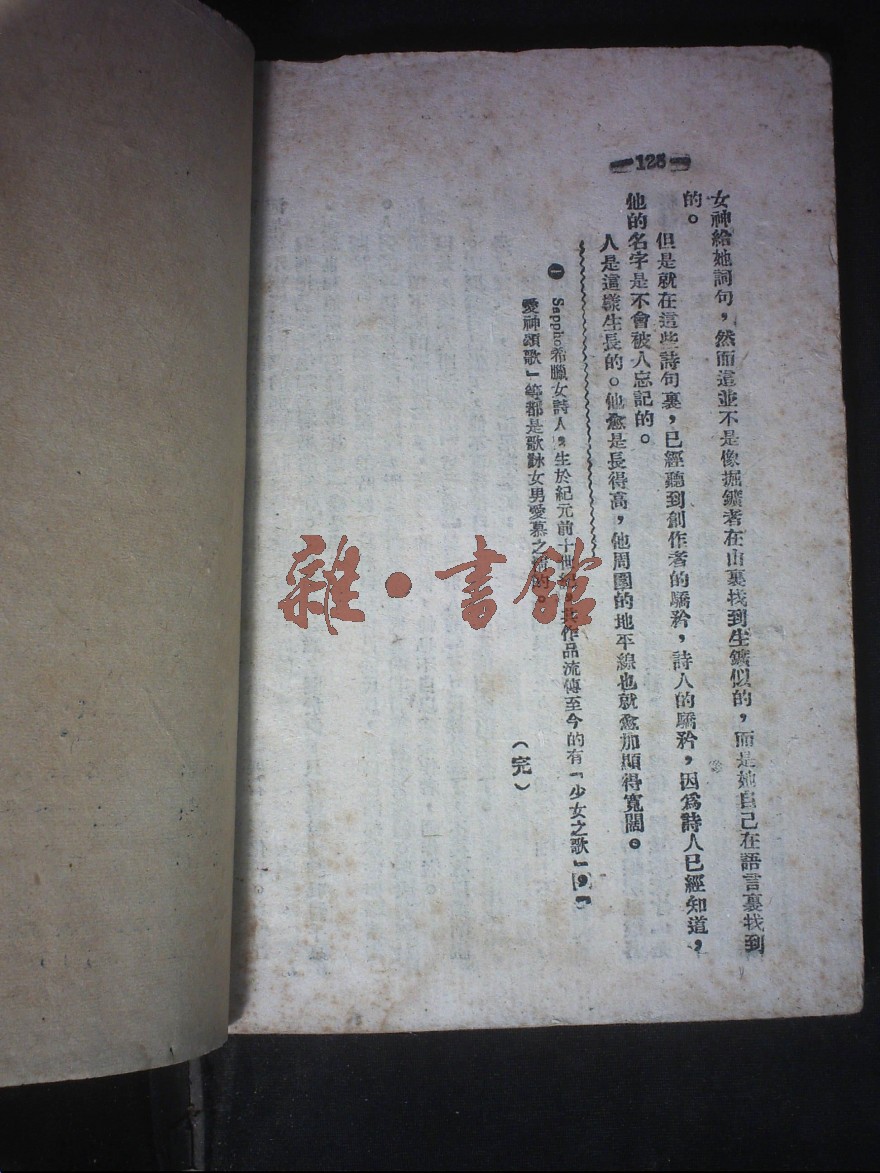 —128—
女神給她詞句，然而這並不是像掘鑛者在山裏找到生鑛似的，而是她自己在語言裏找到
的。
但是就在這些詩句裏，已經聽到創作者的驕矜，詩人的驕矜，因爲詩人已經知道，
他的名字是不會被人忘記的。
人是這樣生長的。他愈是長得高，他周圍的地平線也就愈加顯得寬闊。
❶ Sappho希臘女詩人，生於紀元前十世紀，其作品流傳至今的有「少女之歌」，「
愛神頌歌」等都是歌詠女男愛慕之情的。
（完）
雜·書館